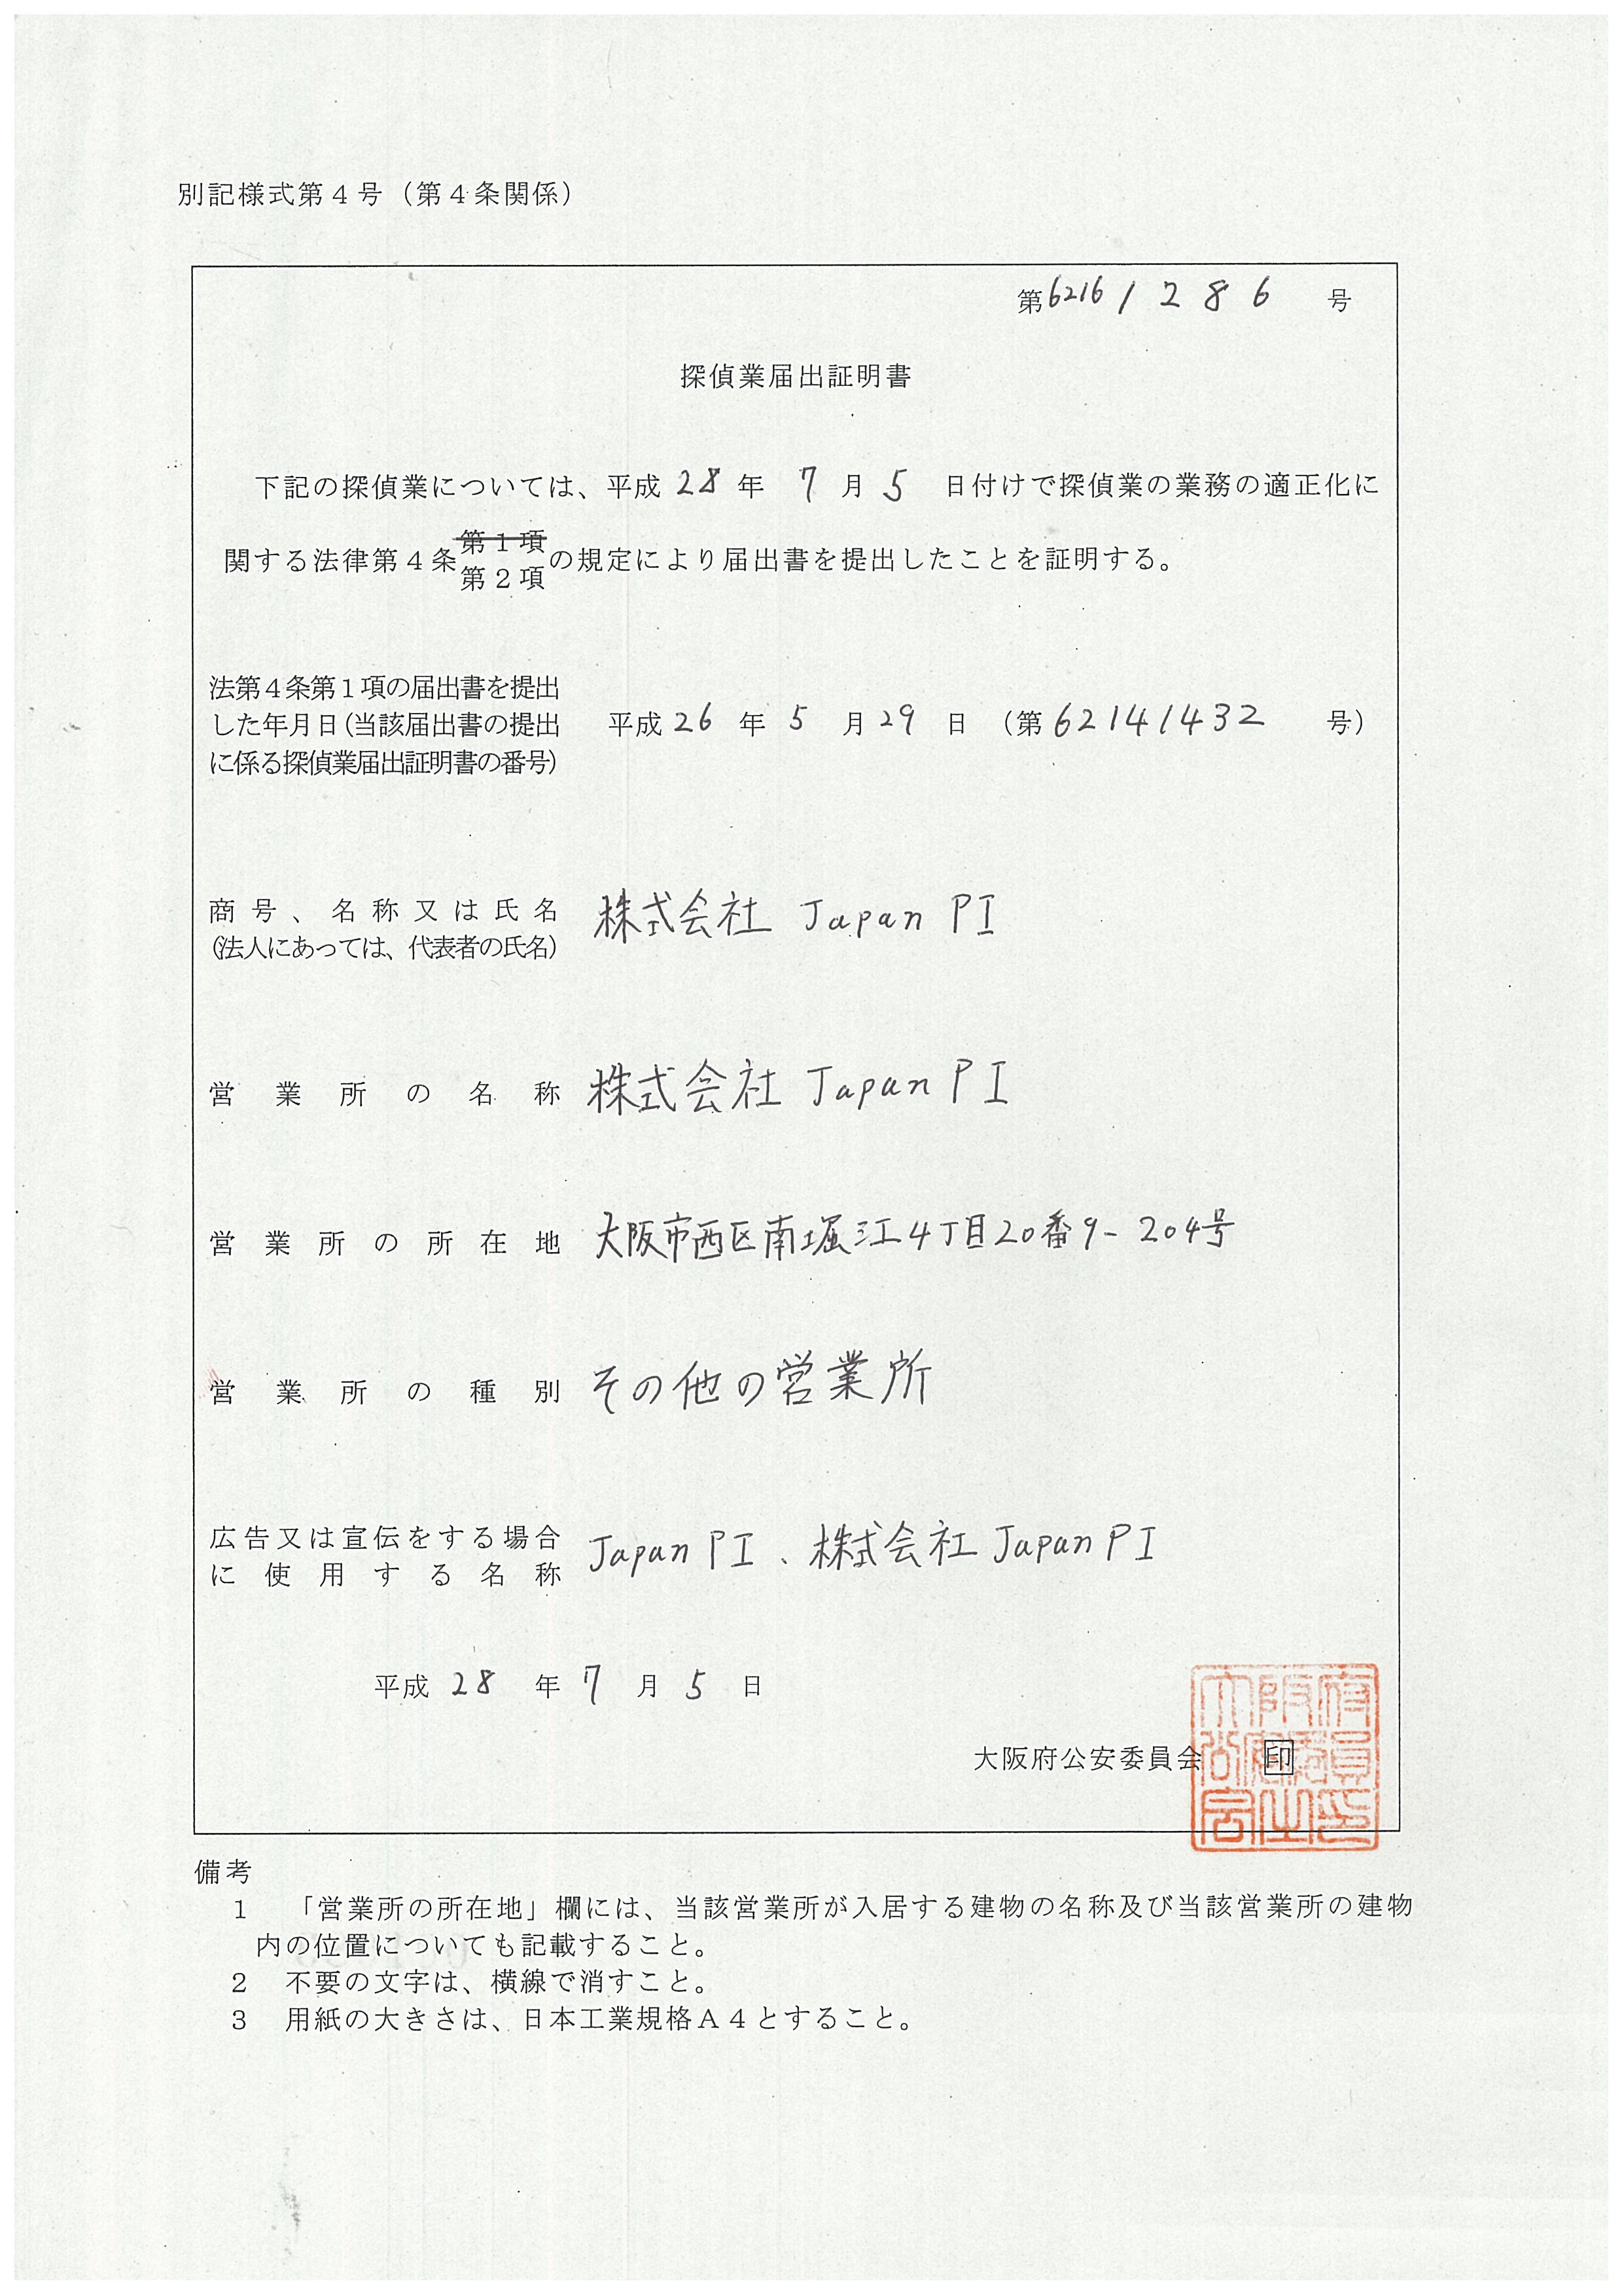 別記様式第４号（第４条関係）
第62161286号
探偵業届出証明書
下記の探偵業については、平成28年7月5日付けで探偵業の業務の適正化に
関する法律第４条第１項
第２項の規定により届出書を提出したことを証明する。
法第４条第１項の届出書を提出
した年月日（当該届出書の提出
に係る探偵業届出証明書の番号）
平成26年5月29日（第62141432号）
商号、名称又は氏名
（法人にあっては、代表者の氏名）
株式会社 Japan PI
営業所の名称 株式会社 Japan PI
営業所の所在地 大阪市西区南堀江4丁目20番9-204号
営業所の種別 その他の営業所
広告又は宣伝をする場合
に使用する名称
Japan PI、株式会社 Japan PI
平成28年7月5日
大阪府公安委員会 印
備考
１　「営業所の所在地」欄には、当該営業所が入居する建物の名称及び当該営業所の建物
内の位置についても記載すること。
２　不要の文字は、横線で消すこと。
３　用紙の大きさは、日本工業規格Ａ４とすること。